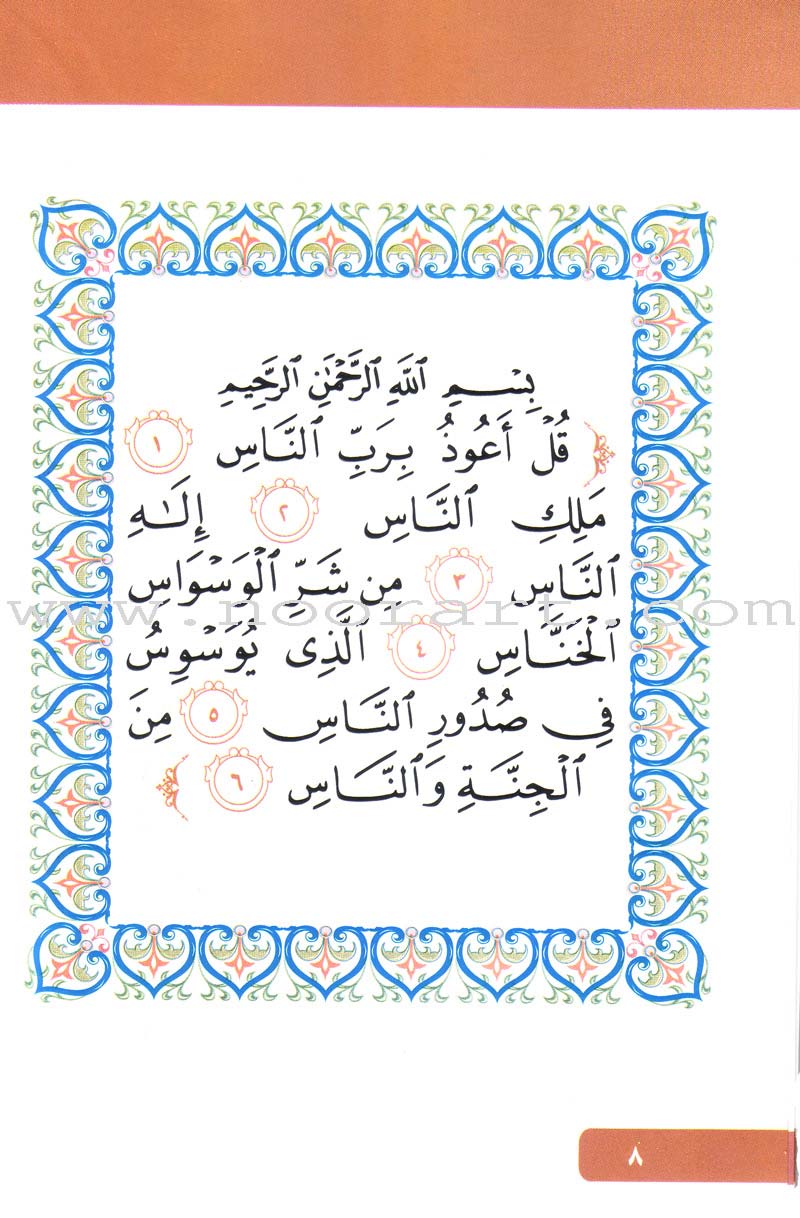 بِسْمِ ٱللَّهِ ٱلرَّحْمَٰنِ ٱلرَّحِيمِ
﴿ قُلْ أَعُوذُ بِرَبِّ ٱلنَّاسِ ١
مَلِكِ ٱلنَّاسِ ٢ إِلَٰهِ
ٱلنَّاسِ ٣ مِن شَرِّ ٱلْوَسْوَاسِ
www.noorart.com
ٱلْخَنَّاسِ ٤ ٱلَّذِى يُوَسْوِسُ
فِى صُدُورِ ٱلنَّاسِ ٥ مِنَ
ٱلْجِنَّةِ وَٱلنَّاسِ ٦ ﴾
٨